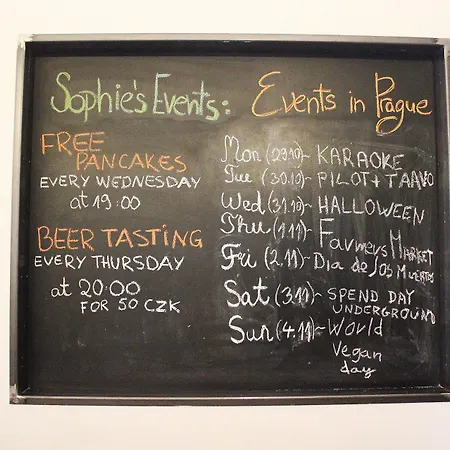 Sophie's Events:
FREE
PANCAKES
EVERY WEDNESDAY
at 19:00
BEER TASTING
EVERY THURSDAY
at 20:00
FOR 50 CZK
Events in Prague
Mon (29.10)- KARAOKE
Tue (30.10)- PILOT + TAAVO
Wed (31.10)- HALLOWEEN
Thu (1.11)- Farmers Market
Fri (2.11)- Dia de los Muertos
Sat (3.11)- SPEND DAY
UNDERGROUND
Sun (4.11)- World
Vegan
day